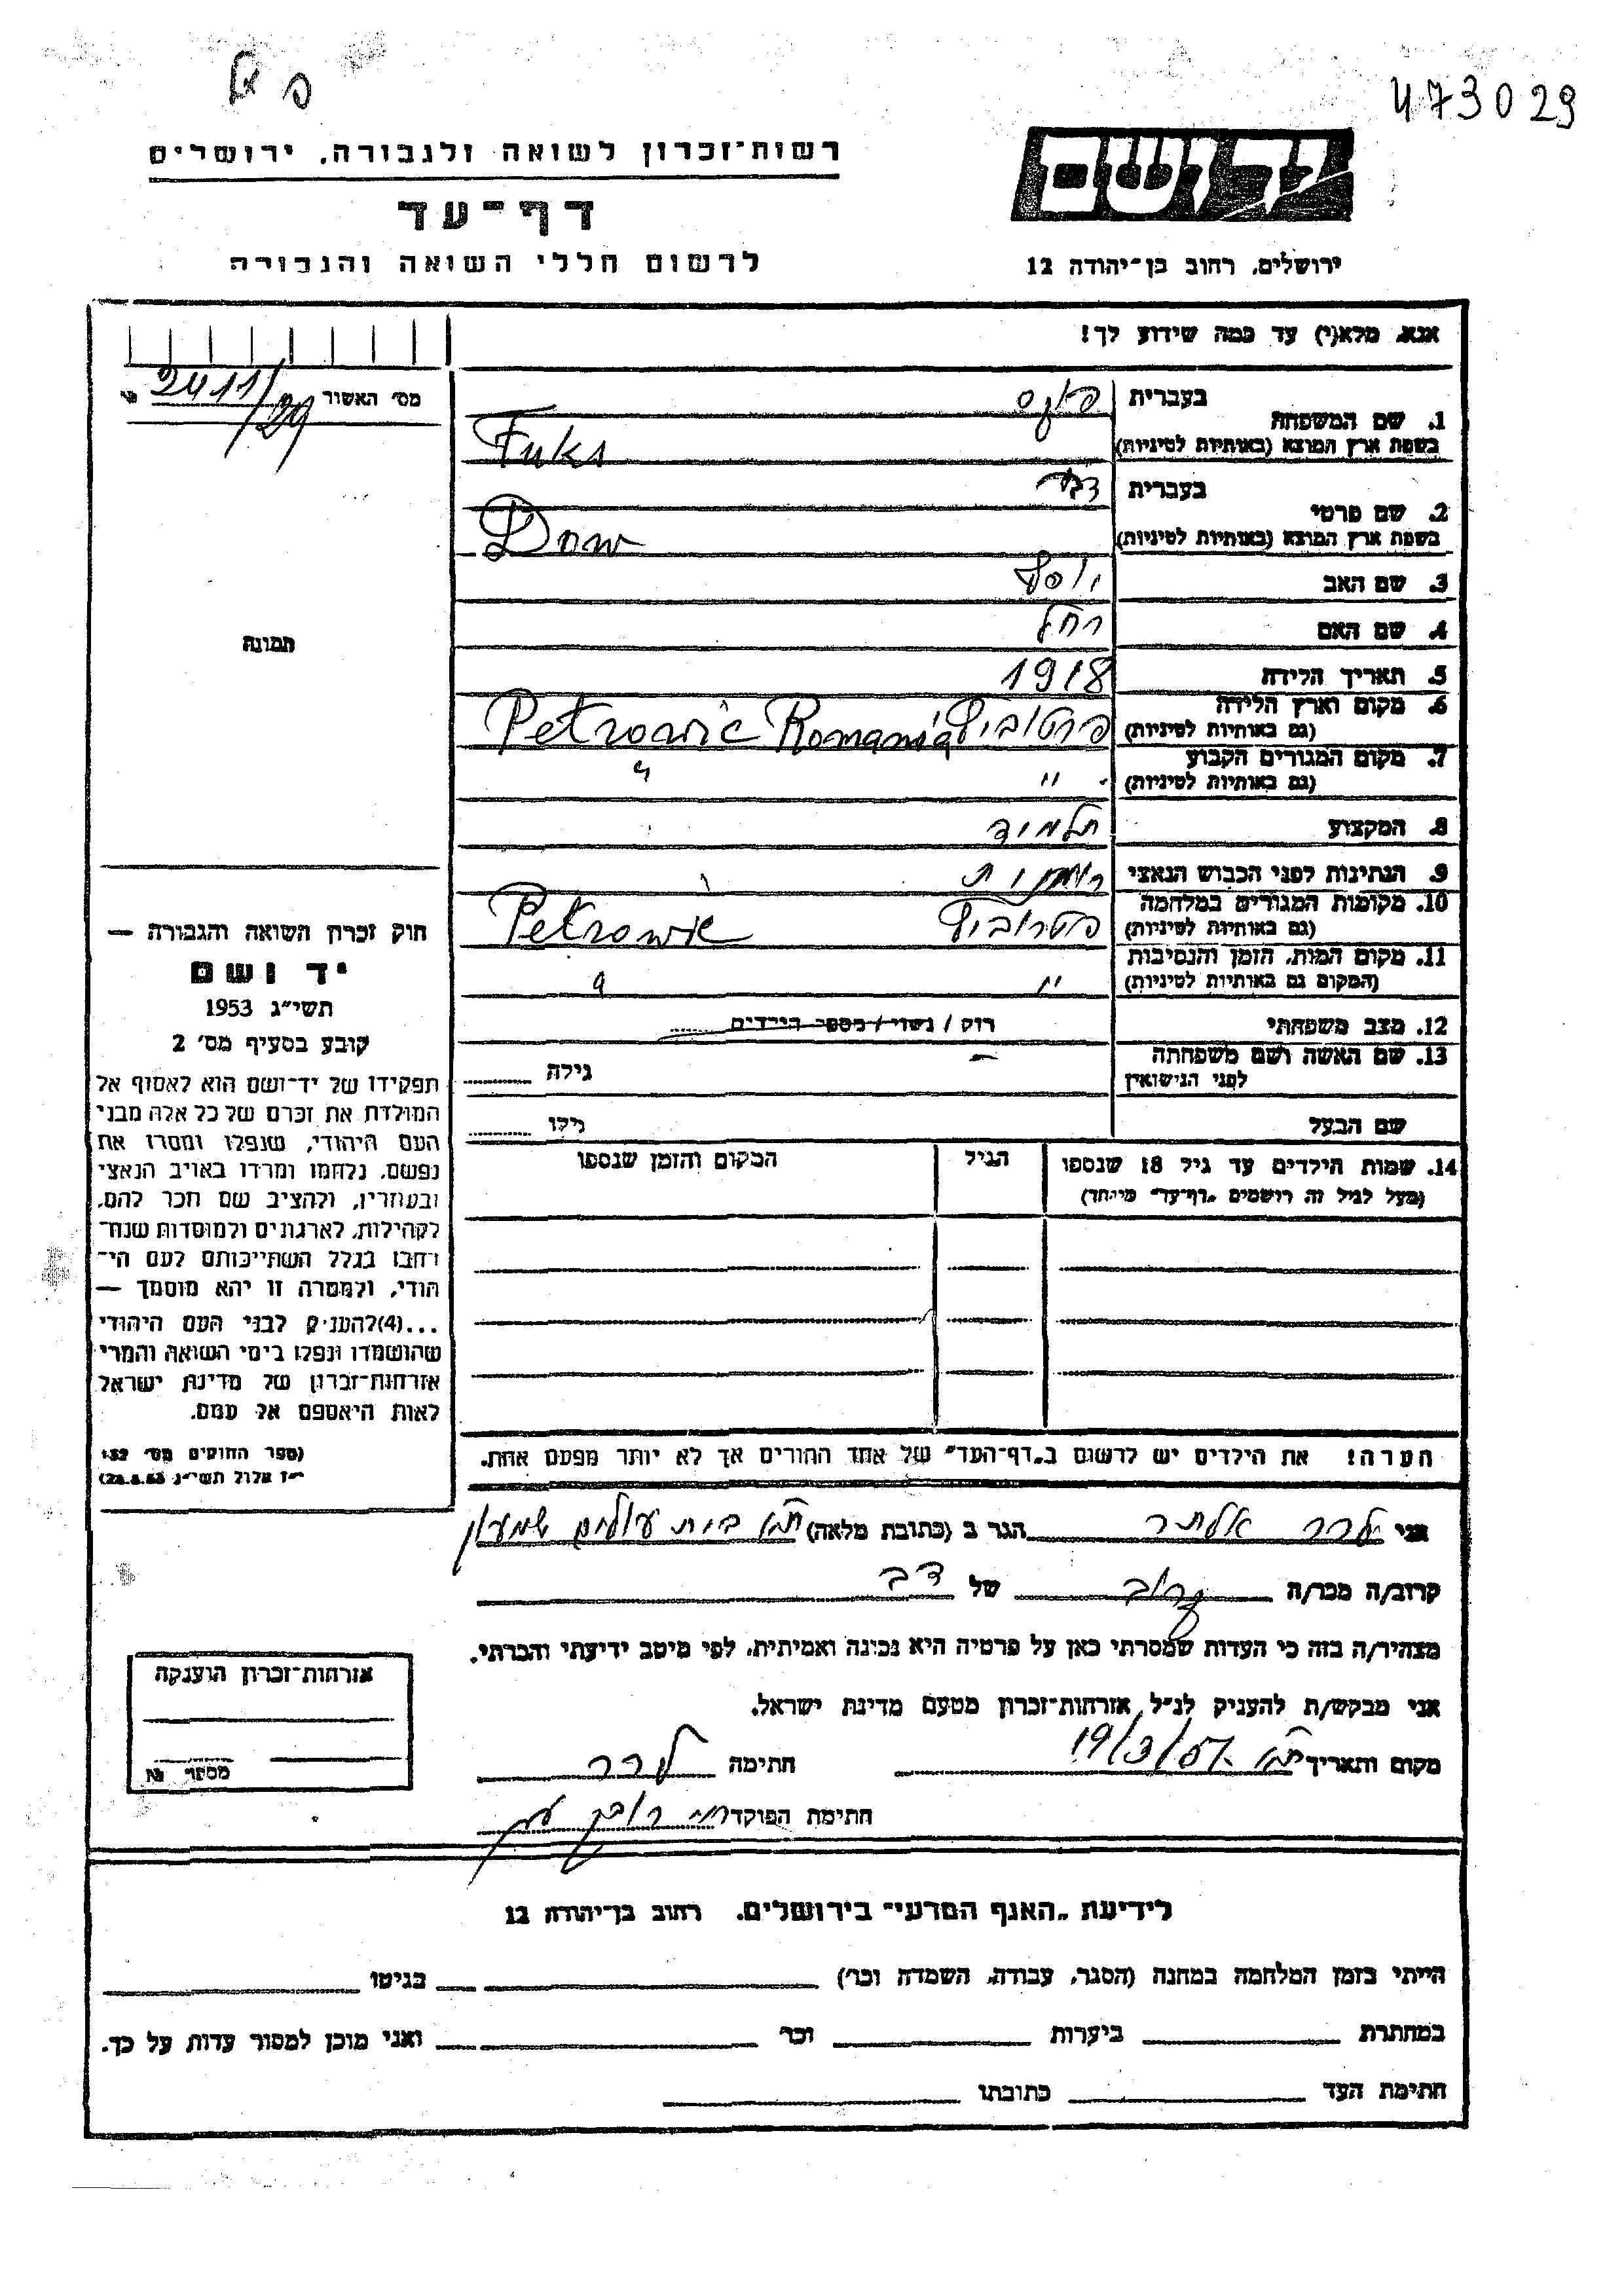 473029
רשות־זכרון לשואה ולגבורה, ירושלים
דף־עד
לרשום חללי השואה והגבורה
יד ושם
ירושלים, רחוב בן־יהודה 12
אנא, מלא(י) עד כמה שידוע לך!
מס׳ האשור 2411/29
1. שם המשפחה
בעברית פוקס
בשפת ארץ המוצא (באותיות לטיניות) Fuks
2. שם פרטי
בעברית דב
בשפת ארץ המוצא (באותיות לטיניות) Dow
3. שם האב יוסף
4. שם האם רחל
5. תאריך הלידה 1918
6. מקום וארץ הלידה
(גם באותיות לטיניות) פטרוביץ Petrowic Romania
7. מקום המגורים הקבוע
(גם באותיות לטיניות) " "
8. המקצוע תלמיד
9. הנתינות לפני הכבוש הנאצי רומנית
10. מקומות המגורים במלחמה
(גם באותיות לטיניות) פטרוביץ Petrowic
11. מקום המות, הזמן והנסיבות
(המקום גם באותיות לטיניות) " "
12. מצב משפחתי רווק / נשוי / מספר הילדים
13. שם האשה ושם משפחתה
לפני הנישואין – גילה
שם הבעל גילו
14. שמות הילדים עד גיל 18 שנספו
(מעל לגיל זה רושמים „דף־עד" מיוחד)
הגיל
המקום והזמן שנספו
הערה! את הילדים יש לרשום ב„דף־העד" של אחד ההורים אך לא יותר מפעם אחת.
תמונה
חוק זכרון השואה והגבורה —
יד ושם
תשי״ג 1953
קובע בסעיף מס׳ 2
תפקידו של יד־ושם הוא לאסוף אל
המולדת את זכרם של כל אלה מבני
העם היהודי, שנפלו ומסרו את
נפשם, נלחמו ומרדו באויב הנאצי
ובעוזריו, ולהציב שם וזכר להם,
לקהילות, לארגונים ולמוסדות שנח־
רבו בגלל השתייכותם לעם הי־
הודי, ולמטרה זו יהא מוסמך —
...(4) להעניק לבני העם היהודי
שהושמדו ונפלו בימי השואה והמרי
אזרחות־זכרון של מדינת ישראל
לאות היאספם אל עמם.
(ספר החוקים מס׳ 132
י״ז אלול תשי״ג 28.8.53)
אני לדרר אלתר הגר ב (כתובת מלאה) בית עולים שמעון
קרוב/ה מכר/ה קרוב של דב
מצהיר/ה בזה כי העדות שמסרתי כאן על פרטיה היא נכונה ואמיתית, לפי מיטב ידיעתי והכרתי.
אני מבקש/ת להעניק לנ״ל אזרחות־זכרון מטעם מדינת ישראל.
מקום ותאריך 19/3/57 חתימה לדרר
חתימת הפוקד
אזרחות־זכרון הוענקה
מספר №
לידיעת „האגף המדעי" בירושלים, רחוב בן־יהודה 12
הייתי בזמן המלחמה במחנה (הסגר, עבודה, השמדה וכו׳) בגיטו
במחתרת ביערות וכו׳ ואני מוכן למסור עדות על כך.
חתימת העד כתובתו